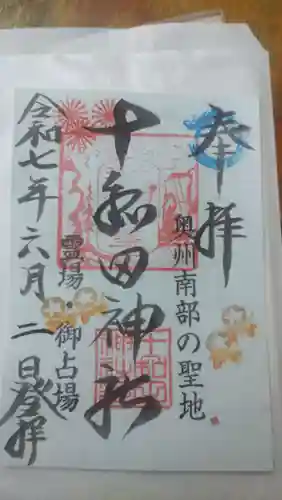 奉拝
奥州南部の聖地
十和田神社
霊場・御占場
令和七年六月二日登拝